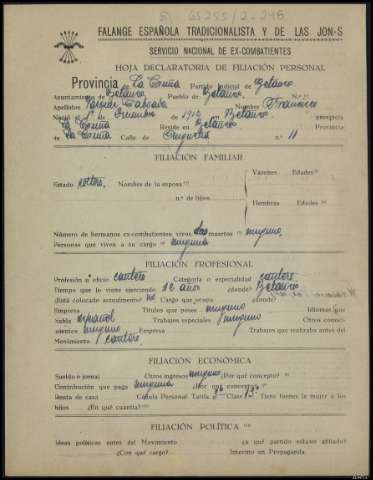 65255/2-246
FALANGE ESPAÑOLA TRADICIONALISTA Y DE LAS JON-S
SERVICIO NACIONAL DE EX-COMBATIENTES
HOJA DECLARATORIA DE FILIACIÓN PERSONAL
Provincia La Coruña Partido Judicial de Betanzos
Ayuntamiento de Betanzos Pueblo de Betanzos N.º
Apellidos Nombre Francisco
Nació el 1º de 1912 en Betanzos municipio
La Coruña Reside en Betanzos Provincia
La Coruña Calle de n.º 11
FILIACIÓN FAMILIAR
Estado soltero Nombres de la esposa Varones Edades
n.º de hijos
Hembras Edades
Número de hermanos ex-combatientes vivos dos muertos ninguno
Personas que viven a su cargo ninguna
FILIACIÓN PROFESIONAL
Profesión u oficio cantero Categoría o especialidad cantero
Tiempo que lo viene ejerciendo 12 años ¿dónde? Betanzos
¿Está colocado actualmente? no Cargo que ocupa ¿dónde?
Empresa Títulos que posee ninguno Idiomas que
habla español Trabajos especiales ninguno Otros conoci-
mientos ninguno Empresa Trabajos que realizaba antes del
Movimiento cantero
FILIACIÓN ECONÓMICA
Sueldo o jornal Otros ingresos ninguno ¿Por qué concepto?
Contribución que paga ninguna ¿Por qué concepto?
Renta de casa Cédula Personal Tarifa Clase Tiene bienes la mujer o los
hijos ¿En qué cuantía?
FILIACIÓN POLÍTICA
Ideas políticas antes del Movimiento ¿A qué partido estuvo afiliado?
¿Con qué cargo? Intervino en Propaganda